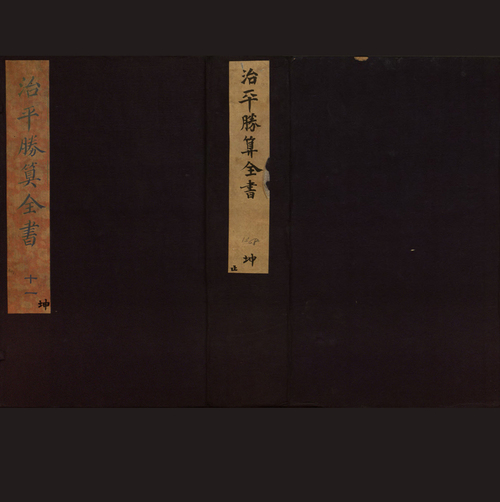 治平勝算全書
十一
坤
治平勝算全書
坤
止